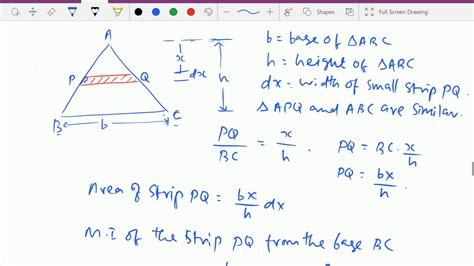 Shapes
Full Screen Drawing
A
x
dx
h
P
Q
B
C
b
b = base of ΔABC
h = height of ΔABC
dx = width of small strip PQ.
ΔAPQ and ABC are similar.
PQ/BC = x/h . PQ = BC. x/h
PQ = bx/h .
Area of strip PQ = bx/h dx
M.I of the strip PQ from the base BC